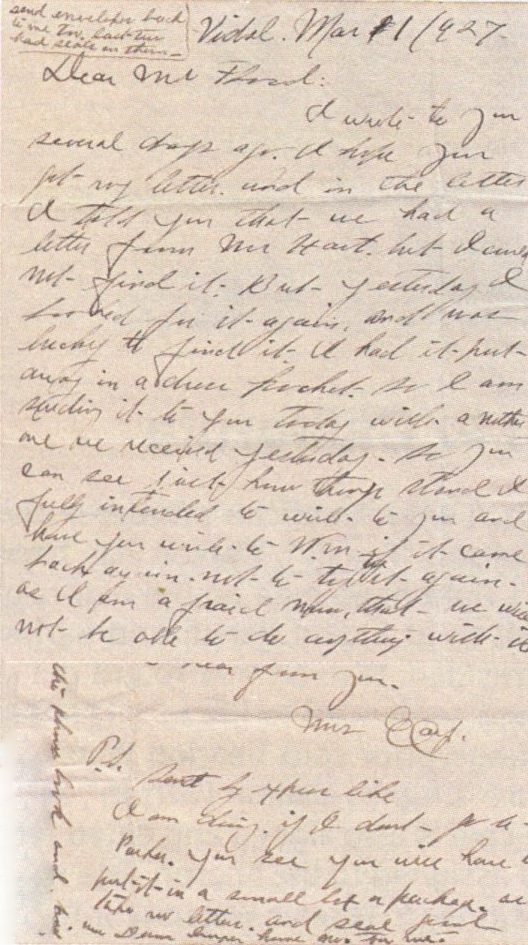 send envelopes back
to me
had
Vidal. Mar 1 1927
Dear Mr
I wrote to you
several days ago. I hope you
got my letter. and in the letter
I told you that we had a
letter from Mr Hart. but I could
not find it. But yesterday I
looked for it again. and was
lucky to find it I had it put
away in a dress pocket. so I am
sending it to you today with another
one we received yesterday. so you
can see just how things stand I
fully intended to write to you and
have you write to Wm if it came
back again. not to try it again.
as I am afraid now, that we will
not be able to do anything with it
hear from you.
Mrs
P.S.
sent by express like
I am doing. if I dont
You see you will have
put it in a small box or package. or
letter. and seal
home
book and